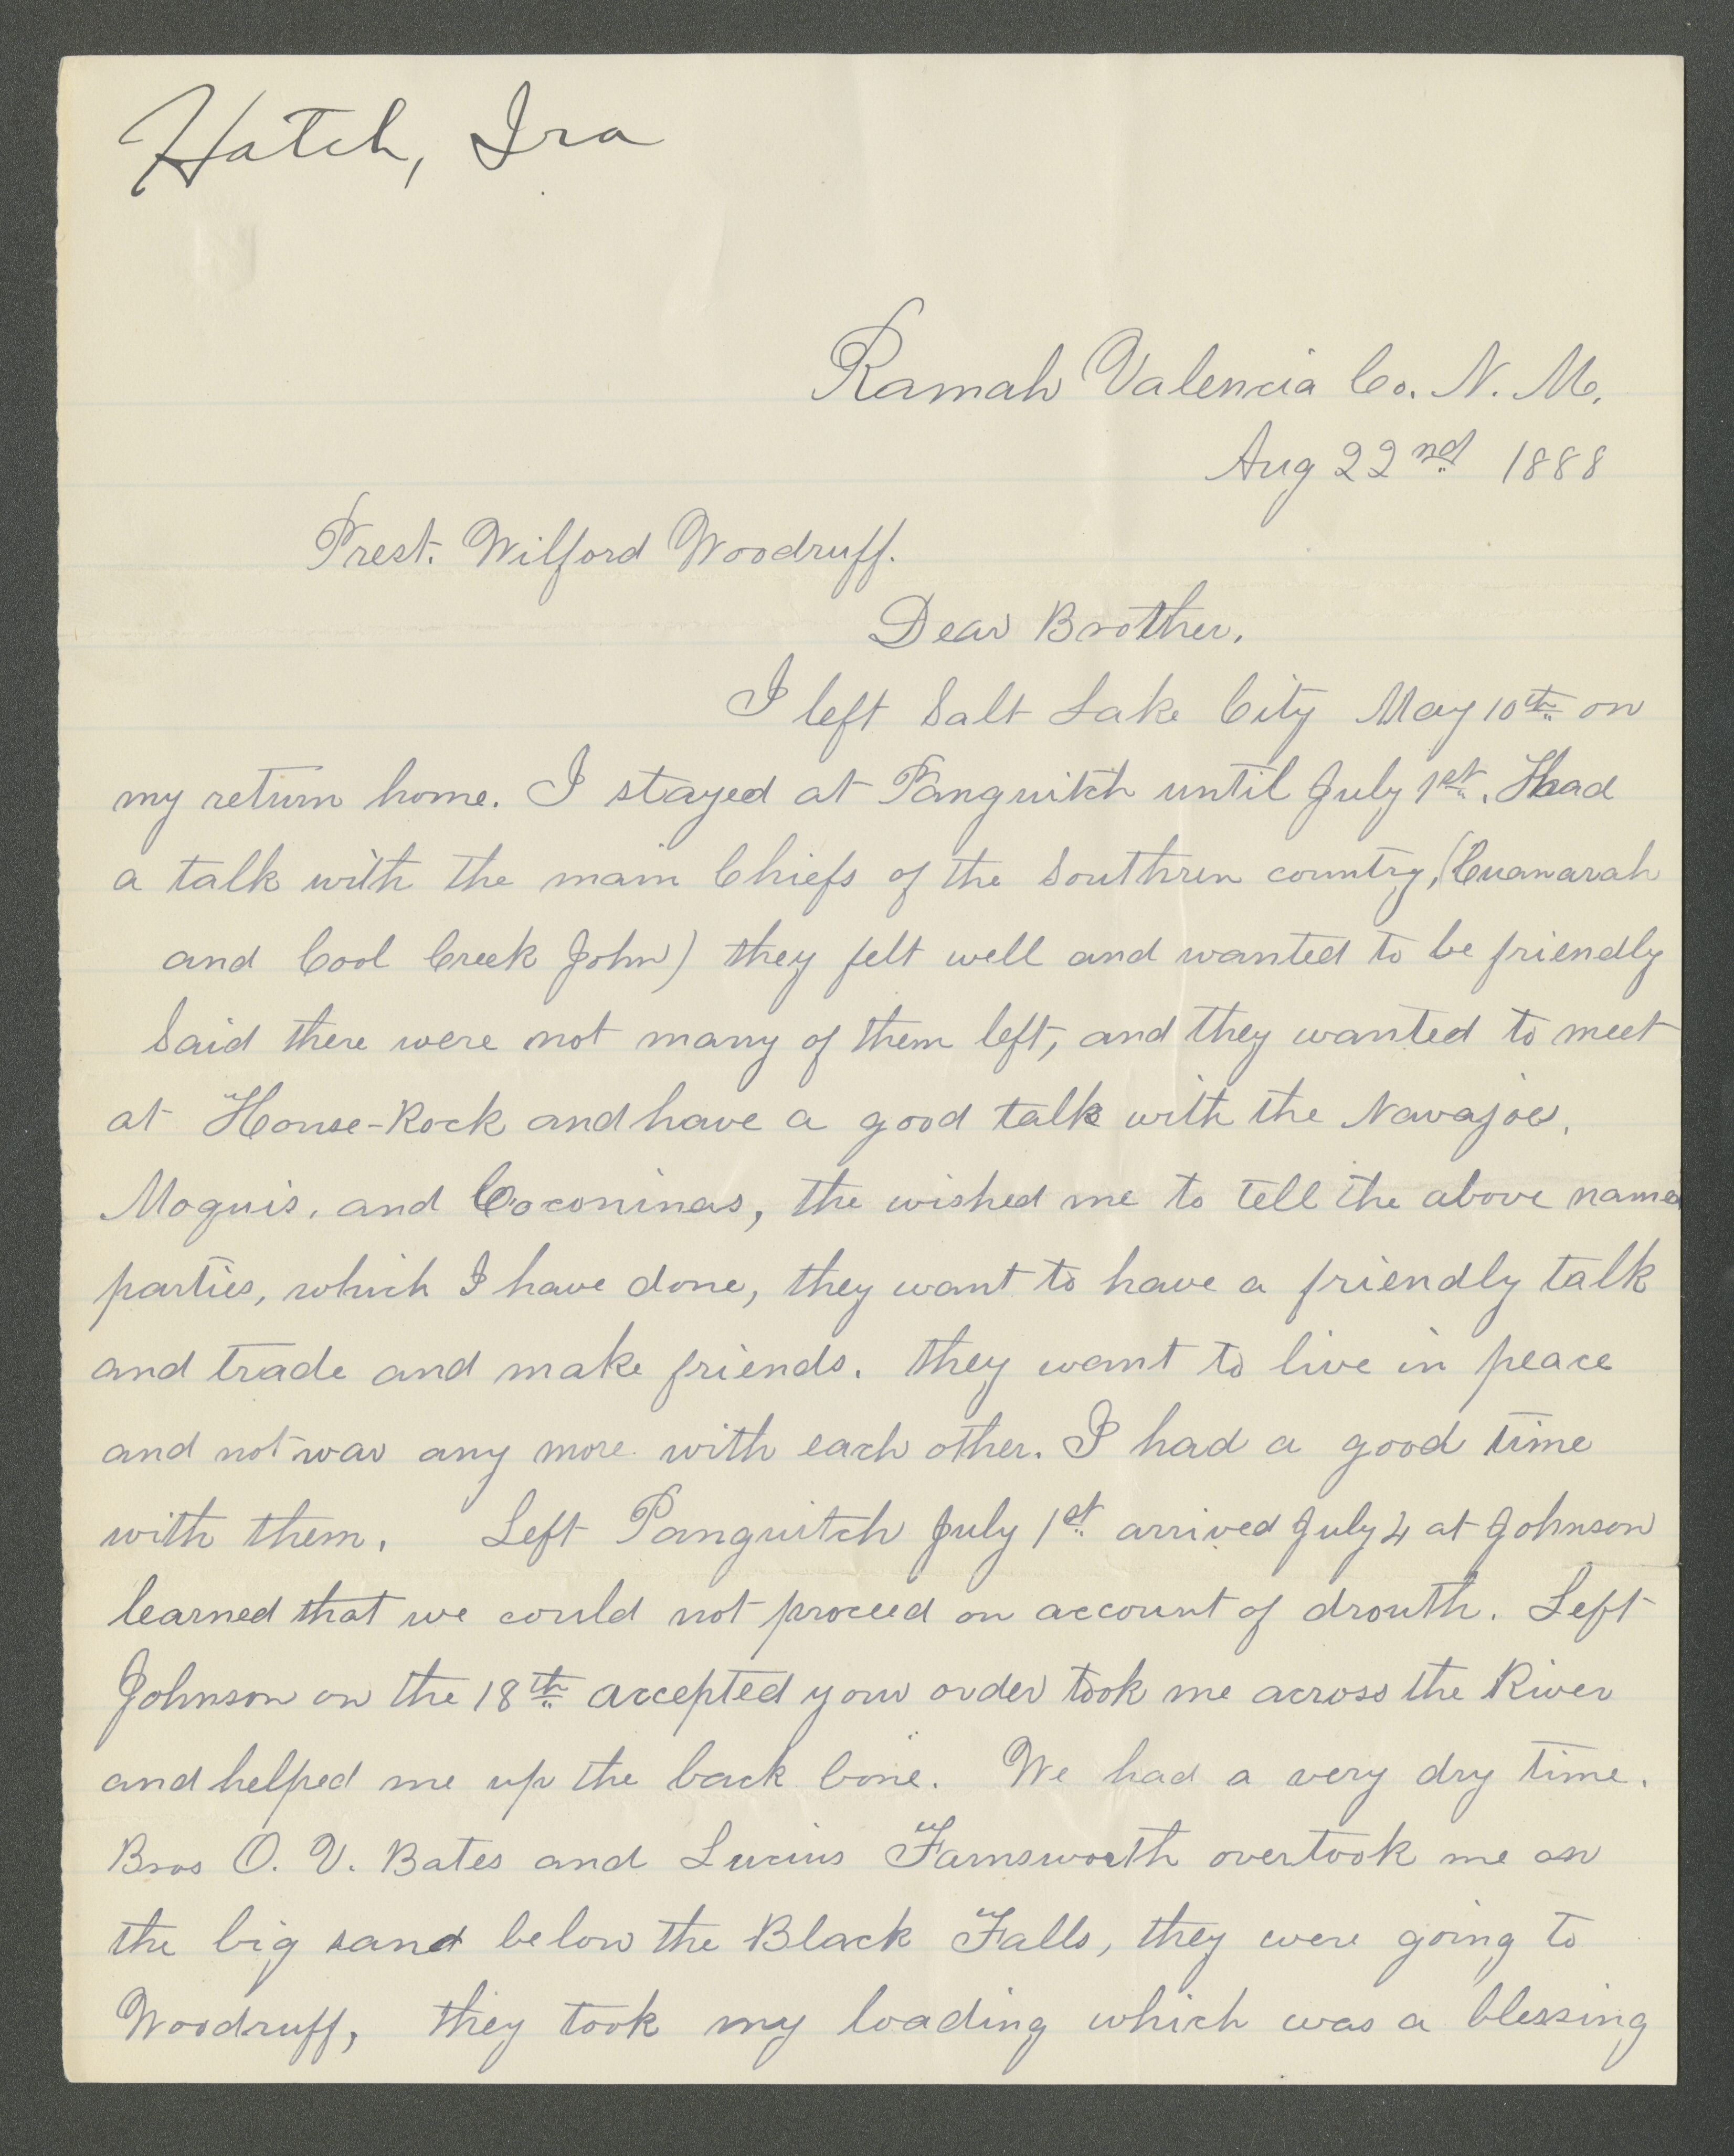 Hatch, Ira
Ramah Valencia Co. N. M.
Aug 22nd 1888
Prest. Wilford Woodruff.
Dear Brother.
I left Salt Lake City May 10th on
my return home. I stayed at Panguitch until July 1st. Had
a talk with the main Chiefs of the Southren country, (Cuanarah
and Cool Creek John) they felt well and wanted to be friendly
Said there were not many of them left, and they wanted to meet
at House-Rock and have a good talk with the Navajoes,
Moquis, and Coconinas, the wished me to tell the above named
parties, which I have done, they want to have a friendly talk
and trade and make friends. they want to live in peace
and not war any more with each other. I had a good time
with them. Left Panguitch July 1st arrived July 4 at Johnson
learned that we could not proceed on account of drouth. Left
Johnson on the 18th accepted your order took me across the River
and helped me up the back bone. We had a very dry time.
Bros O. V. Bates and Lucius Farnsworth overtook me on
the big sand below the Black Falls, they were going to
Woodruff, they took my loading which was a blessing